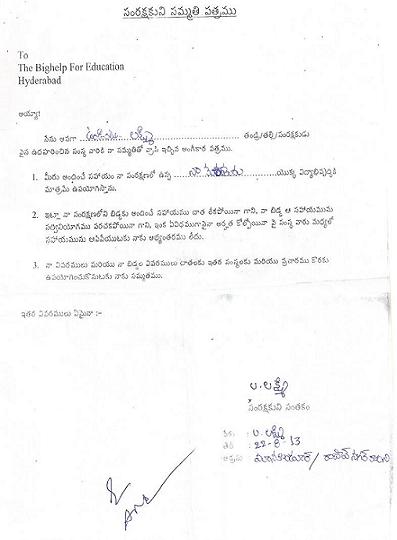 సంరక్షకుని సమ్మతి పత్రము
To
The Bighelp For Education
Hyderabad
అయ్యా!
నేను అనగా ........ లక్ష్మి ........ తండ్రి/తల్లి/సంరక్షకుడు
పైన ఉదహరించిన సంస్థ వారికి నా సమ్మతితో వ్రాసి ఇచ్చిన అంగీకార పత్రము.
1. మీరు అందించే సహాయం నా సంరక్షణలో ఉన్న ........ యొక్క విద్యాభివృద్ధికి
మాత్రమే ఉపయోగిస్తాను.
2. ఇట్లా నా సంరక్షణలోని బిడ్డకు అందించే సహాయము దాత లేకపోయినా గాని, నా బిడ్డ ఆ సహాయమును
సద్వినియోగము పరచకపోయినా గాని, ఇంక ఏవిధముగానైనా అర్హత కోల్పోయినా పై సంస్థ వారు మధ్యలో
సహాయమును ఆపివేయుటకు నాకు అభ్యంతరము లేదు.
3. నా వివరములు మరియు నా బిడ్డ వివరములు దాతలకు ఇతర సంస్థలకు మరియు ప్రచారము కొరకు
ఉపయోగించుకొనుటకు నాకు సమ్మతము.
ఇతర వివరములు ఏమైనా :-
ల. లక్ష్మి
సంరక్షకుని సంతకం
పేరు : ల. లక్ష్మి
తేది : 22-8-13